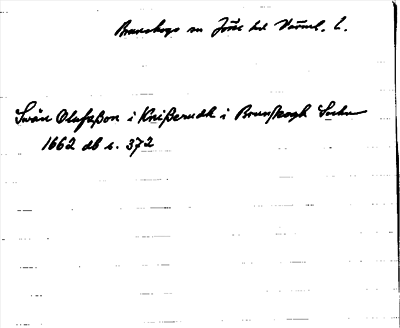 Brunskogs sn Jösse hd Värml. l.
Swän Olufßon i Knißerudh i Brunskogh Sochn
1662 db s. 372